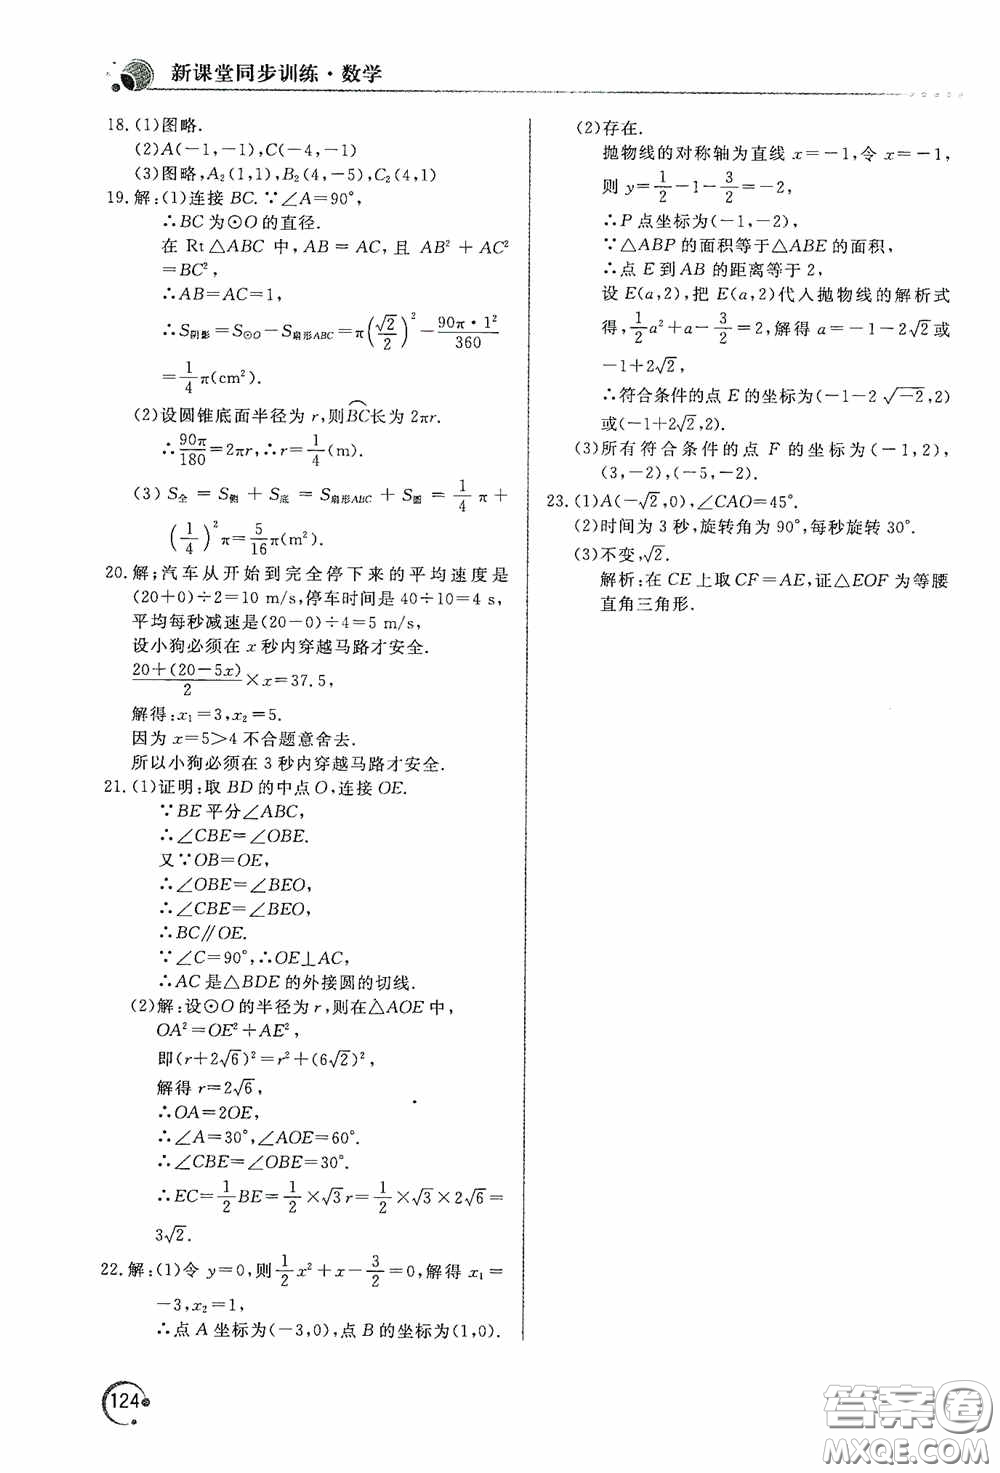 新课堂同步训练·数学
18.(1)图略.
(2)A(-1,-1),C(-4,-1)
(3)图略,A₂(1,1),B₂(4,-5),C₂(4,1)
19.解:(1)连接 BC.∵∠A=90°,
∴BC 为⊙O 的直径.
在 Rt△ABC 中,AB=AC,且 AB²+AC²
=BC²,
∴AB=AC=1,
∴S阴影=S⊙O-S扇形ABC=π(√2/2)²-90π·1²/360
=1/4π(cm²).
(2)设圆锥底面半径为 r,则BC长为 2πr.
∴90π/180=2πr,∴r=1/4(m).
(3) S全=S侧+S底=S扇形ABC+S圆=1/4π+
(1/4)²π=5/16π(m²).
20.解;汽车从开始到完全停下来的平均速度是
(20+0)÷2=10 m/s,停车时间是 40÷10=4 s,
平均每秒减速是(20-0)÷4=5 m/s,
设小狗必须在 x 秒内穿越马路才安全.
20+(20-5x)/2×x=37.5,
解得:x₁=3,x₂=5.
因为 x=5>4 不合题意舍去.
所以小狗必须在 3 秒内穿越马路才安全.
21.(1)证明:取 BD 的中点 O,连接 OE.
∵BE 平分∠ABC,
∴∠CBE=∠OBE.
又∵OB=OE,
∴∠OBE=∠BEO,
∴∠CBE=∠BEO,
∴BC∥OE.
∵∠C=90°,∴OE⊥AC,
∴AC 是△BDE 的外接圆的切线.
(2)解:设⊙O 的半径为 r,则在△AOE 中,
OA²=OE²+AE²,
即(r+2√6)²=r²+(6√2)²,
解得 r=2√6,
∴OA=2OE,
∴∠A=30°,∠AOE=60°.
∴∠CBE=∠OBE=30°.
∴EC=1/2BE=1/2×√3r=1/2×√3×2√6=
3√2.
22.解:(1)令 y=0,则1/2x²+x-3/2=0,解得 x₁=
-3,x₂=1,
∴点 A 坐标为(-3,0),点 B 的坐标为(1,0).
(2)存在.
抛物线的对称轴为直线 x=-1,令 x=-1,
则 y=1/2-1-3/2=-2,
∴P 点坐标为(-1,-2),
∵△ABP 的面积等于△ABE 的面积,
∴点 E 到 AB 的距离等于 2,
设 E(a,2),把 E(a,2)代人抛物线的解析式
得,1/2a²+a-3/2=2,解得 a=-1-2√2或
-1+2√2,
∴符合条件的点 E 的坐标为(-1-2√-2,2)
或(-1+2√2,2).
(3)所有符合条件的点 F 的坐标为(-1,2),
(3,-2),(-5,-2).
23.(1)A(-√2,0),∠CAO=45°.
(2)时间为 3 秒,旋转角为 90°,每秒旋转 30°.
(3)不变,√2.
解析:在 CE 上取 CF=AE,证△EOF 为等腰
直角三角形.
124
答案卷
MXQE.COM